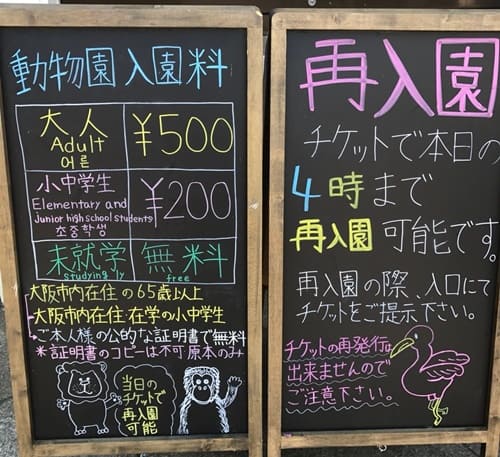 動物園 入園料
大人
Adult
어른
¥500
小中学生
Elementary and
Junior high school students
초중학생
¥200
未就学
studying ly
無料
free
大阪市内在住の65歳以上
大阪市内在住・在学の小中学生
ご本人様の公的な証明書で無料
*証明書のコピーは不可 原本のみ
当日の
チケットで
再入園
可能
再入園
チケットで本日の
4時まで
再入園 可能です。
再入園の際、入口にて
チケットをご提示下さい。
チケットの再発行は
出来ませんので
ご注意下さい。